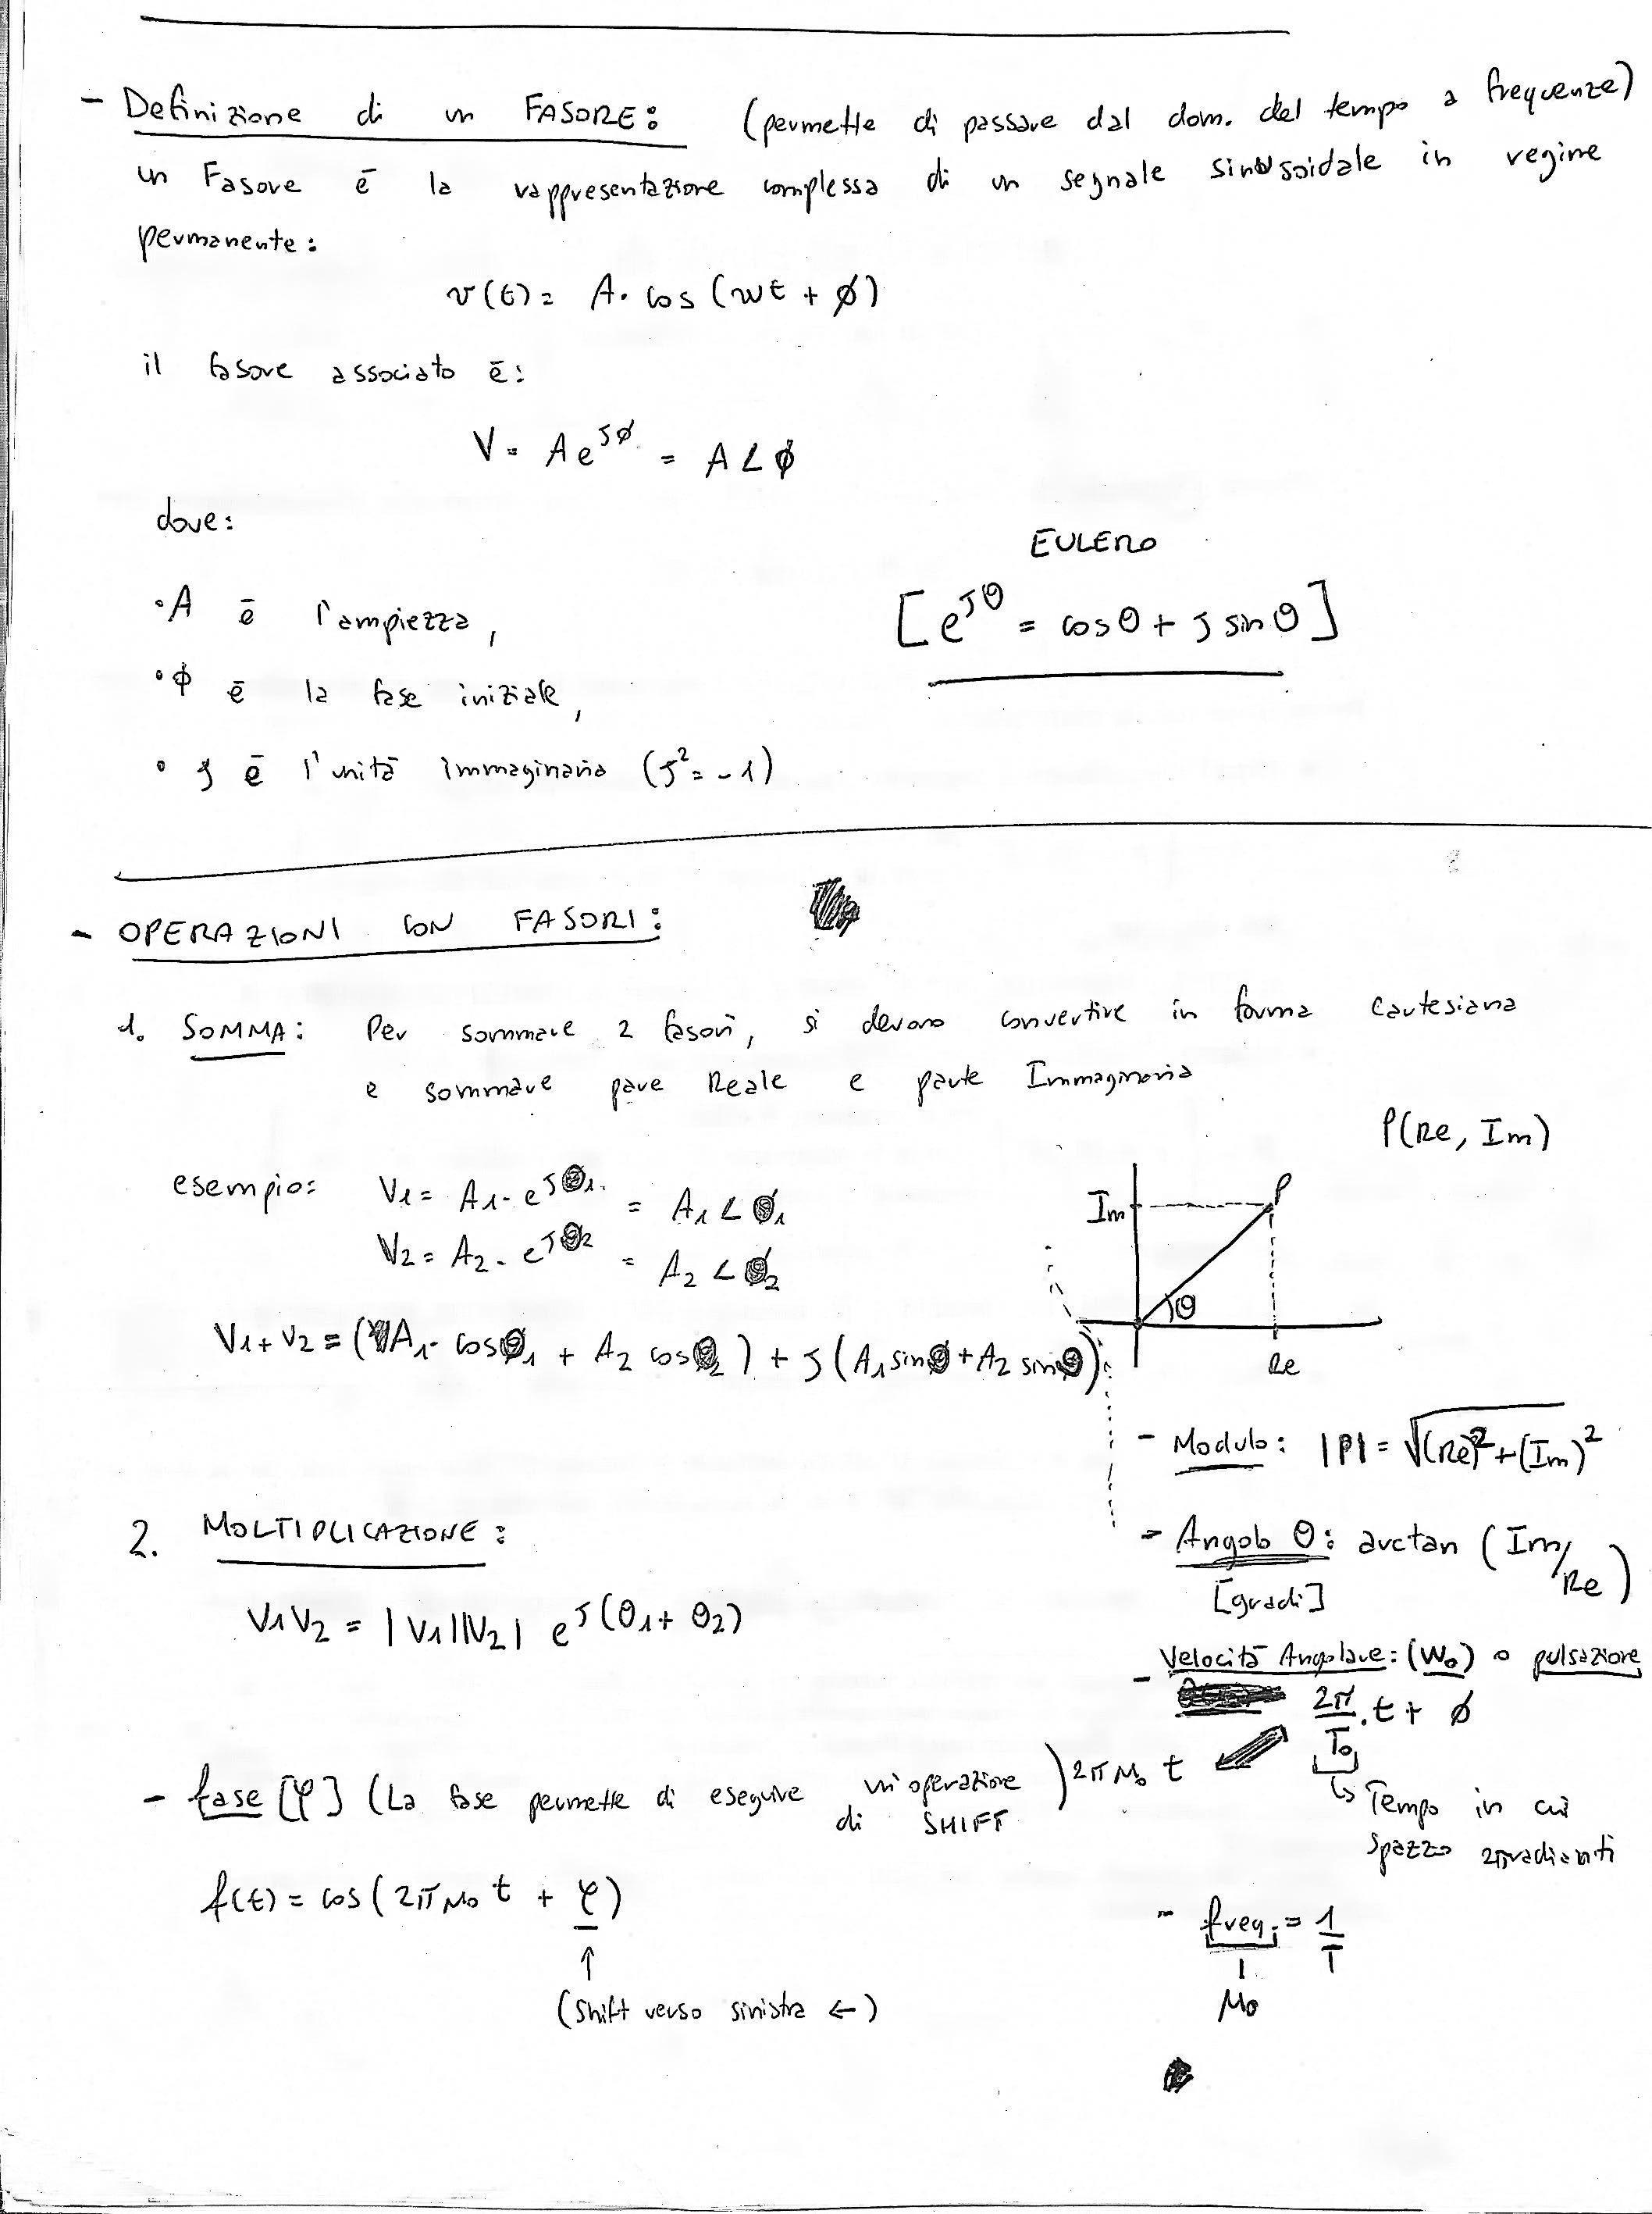 - Definizione di un FASORE: (permette di passare dal dom. del tempo a frequenze)
un Fasore è la rappresentazione complessa di un segnale sinusoidale in regime
permanente:
v(t) = A · cos (wt + ϕ)
il fasore associato è:
V = A e^jϕ = A∠ϕ
dove:
EULERO
• A è l'ampiezza,
[e^jθ = cosθ + j sinθ]
• ϕ è la fase iniziale,
• j è l'unità immaginaria (j² = -1)
- OPERAZIONI CON FASORI:
1. SOMMA: Per sommare 2 fasori, si devono convertire in forma cartesiana
e sommare pare Reale e parte Immaginaria
P(Re, Im)
esempio: V1 = A1 · e^jθ1 = A1∠θ1
V2 = A2 · e^jθ2 = A2∠θ2
V1 + V2 = (A1 · cosθ1 + A2 cosθ2) + j (A1 sinθ + A2 sinθ)
Im
P
θ
Re
- Modulo: |P| = √(Re)² + (Im)²
2. MOLTIPLICAZIONE:
V1V2 = |V1||V2| e^j(θ1 + θ2)
- Angolo θ: arctan (Im/Re)
[gradi]
- Velocità Angolare: (W0) o pulsazione
2π/T0 · t + ϕ
2π μ0 t
↳ Tempo in cui
spazzo 2π radianti
- fase [φ] (La fase permette di eseguire un'operazione
di SHIFT)
f(t) = cos (2π μ0 t + φ)
↑
(Shift verso sinistra ←)
- freq. = 1/T
μ0